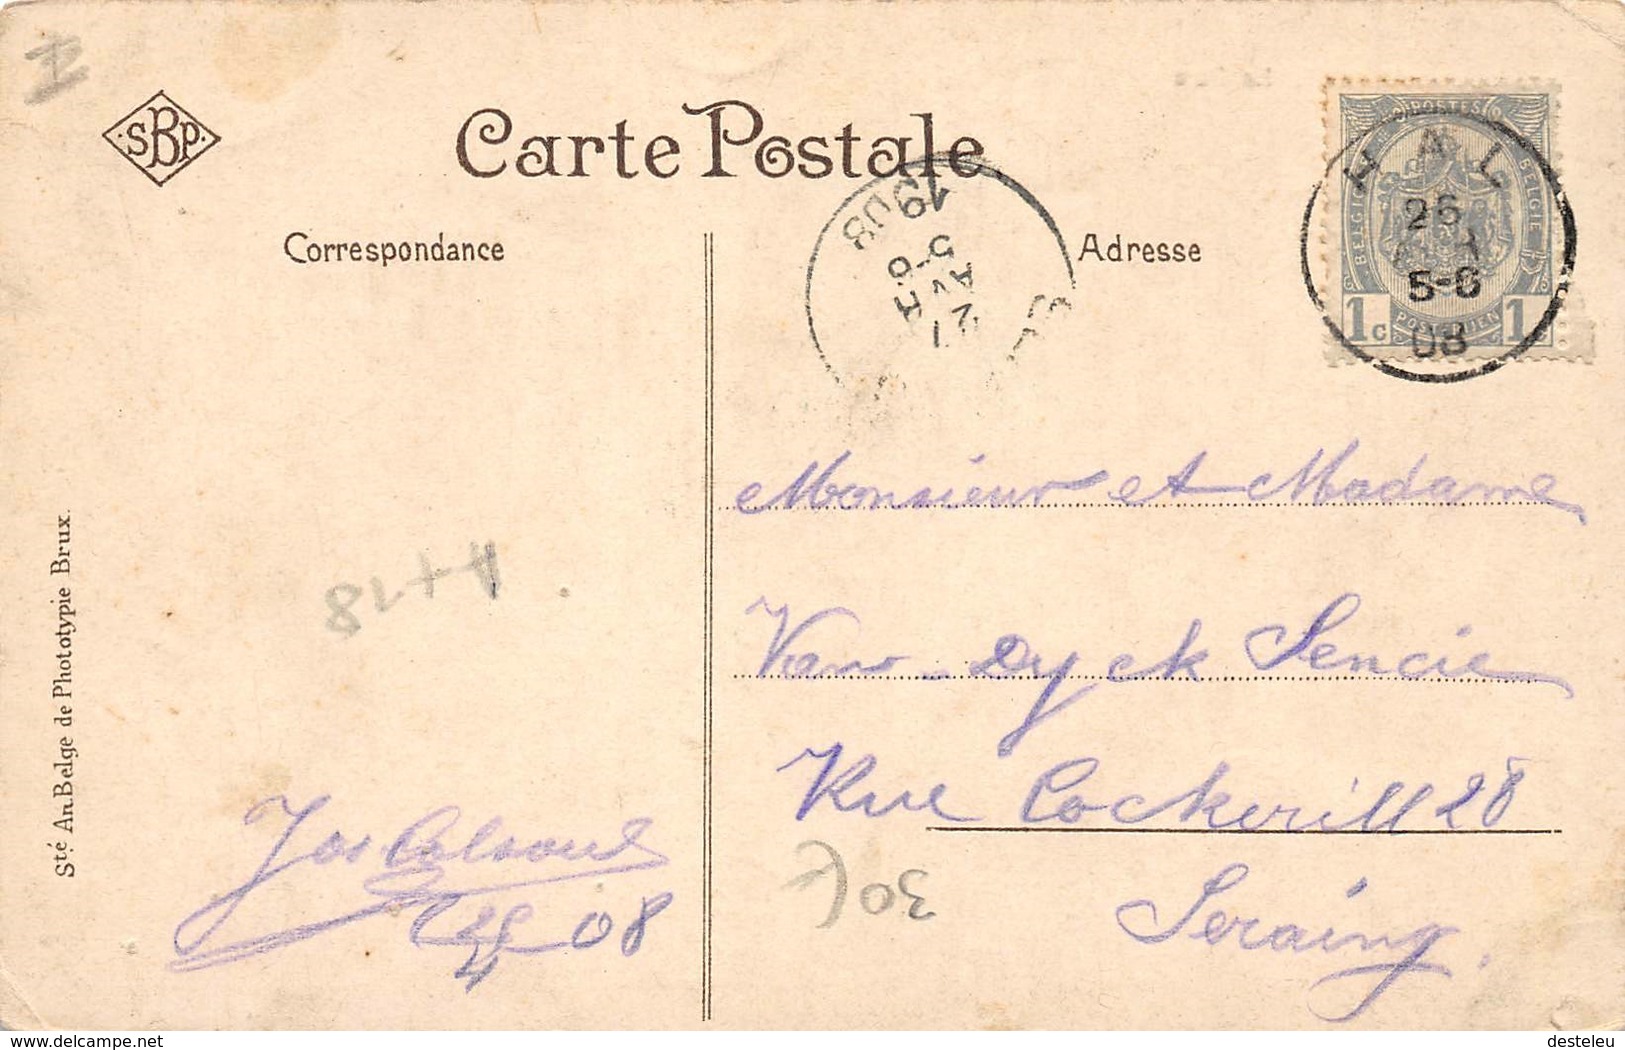 SBP
Carte Postale
Correspondance
Adresse
POSTES
BELGIQUE
BELGIË
POSTERIJEN
1c 1c
HAL
26
5-6
08
1908
5-6
AV
27
Monsieur et Madame
Van-Dyck Sencie
Rue Cockerill 28
Seraing.
Jos
08
A+18
30€
Sté An. Belge de Phototypie Brux.
www.delcampe.net
desteleu